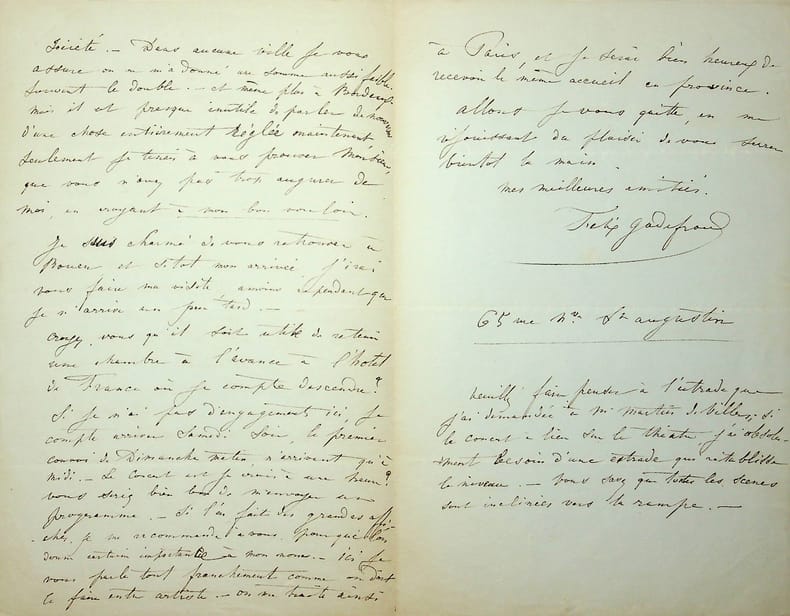 Société. — Dans aucune ville je vous
assure on ne m'a donné une somme aussi faible,
souvent le double. — et même plus à Bordeaux
mais il est presque inutile de parler de nouveau
d'une chose entièrement réglée maintenant
seulement je tenais à vous prouver Monsieur,
que vous n'avez pas trop auguré de
moi, en croyant à mon bon vouloir.
Je suis charmé de vous retrouver à
Rouen et sitot mon arrivée j'irai
vous faire ma visite, amoins cependant que
je n'arrive un peu tard. —
croyez, vous qu'il soit utile de retenir
une chambre à l'avance à l'hotel
de France où je compte descendre?
Si je n'ai pas d'engagement ici je
compte arriver Samedi soir, le premier
convoi de Dimanche matin n'arrivant qu'à
midi. — Le concert est je crois à une heure?
vous seriez bien bon de m'envoyer un
programme. — Si l'on fait des grandes affi-
ches, je me recommande à vous, pour que l'on
donne certaine importance à mon nom. — ici je
vous parle tout franchement comme on doit
le faire entre artiste. — on me traite ainsi
à Paris, et je serai bien heureux de
recevoir le même accueil en province.
Allons je vous quitte, en me
réjouissant du plaisir de vous serrer
bientot la main.
mes meilleures amitiés.
Félix Godefroid
65 rue Nve St augustin
Veuillez faire penser à l'estrade que
j'ai demandée à Mr Martin de Villers; si
le concert a lieu sur le théâtre j'ai absolu-
ment besoin d'une estrade qui rétablisse
le niveau. — Vous savez que toutes les scènes
sont inclinées vers la rampe. —